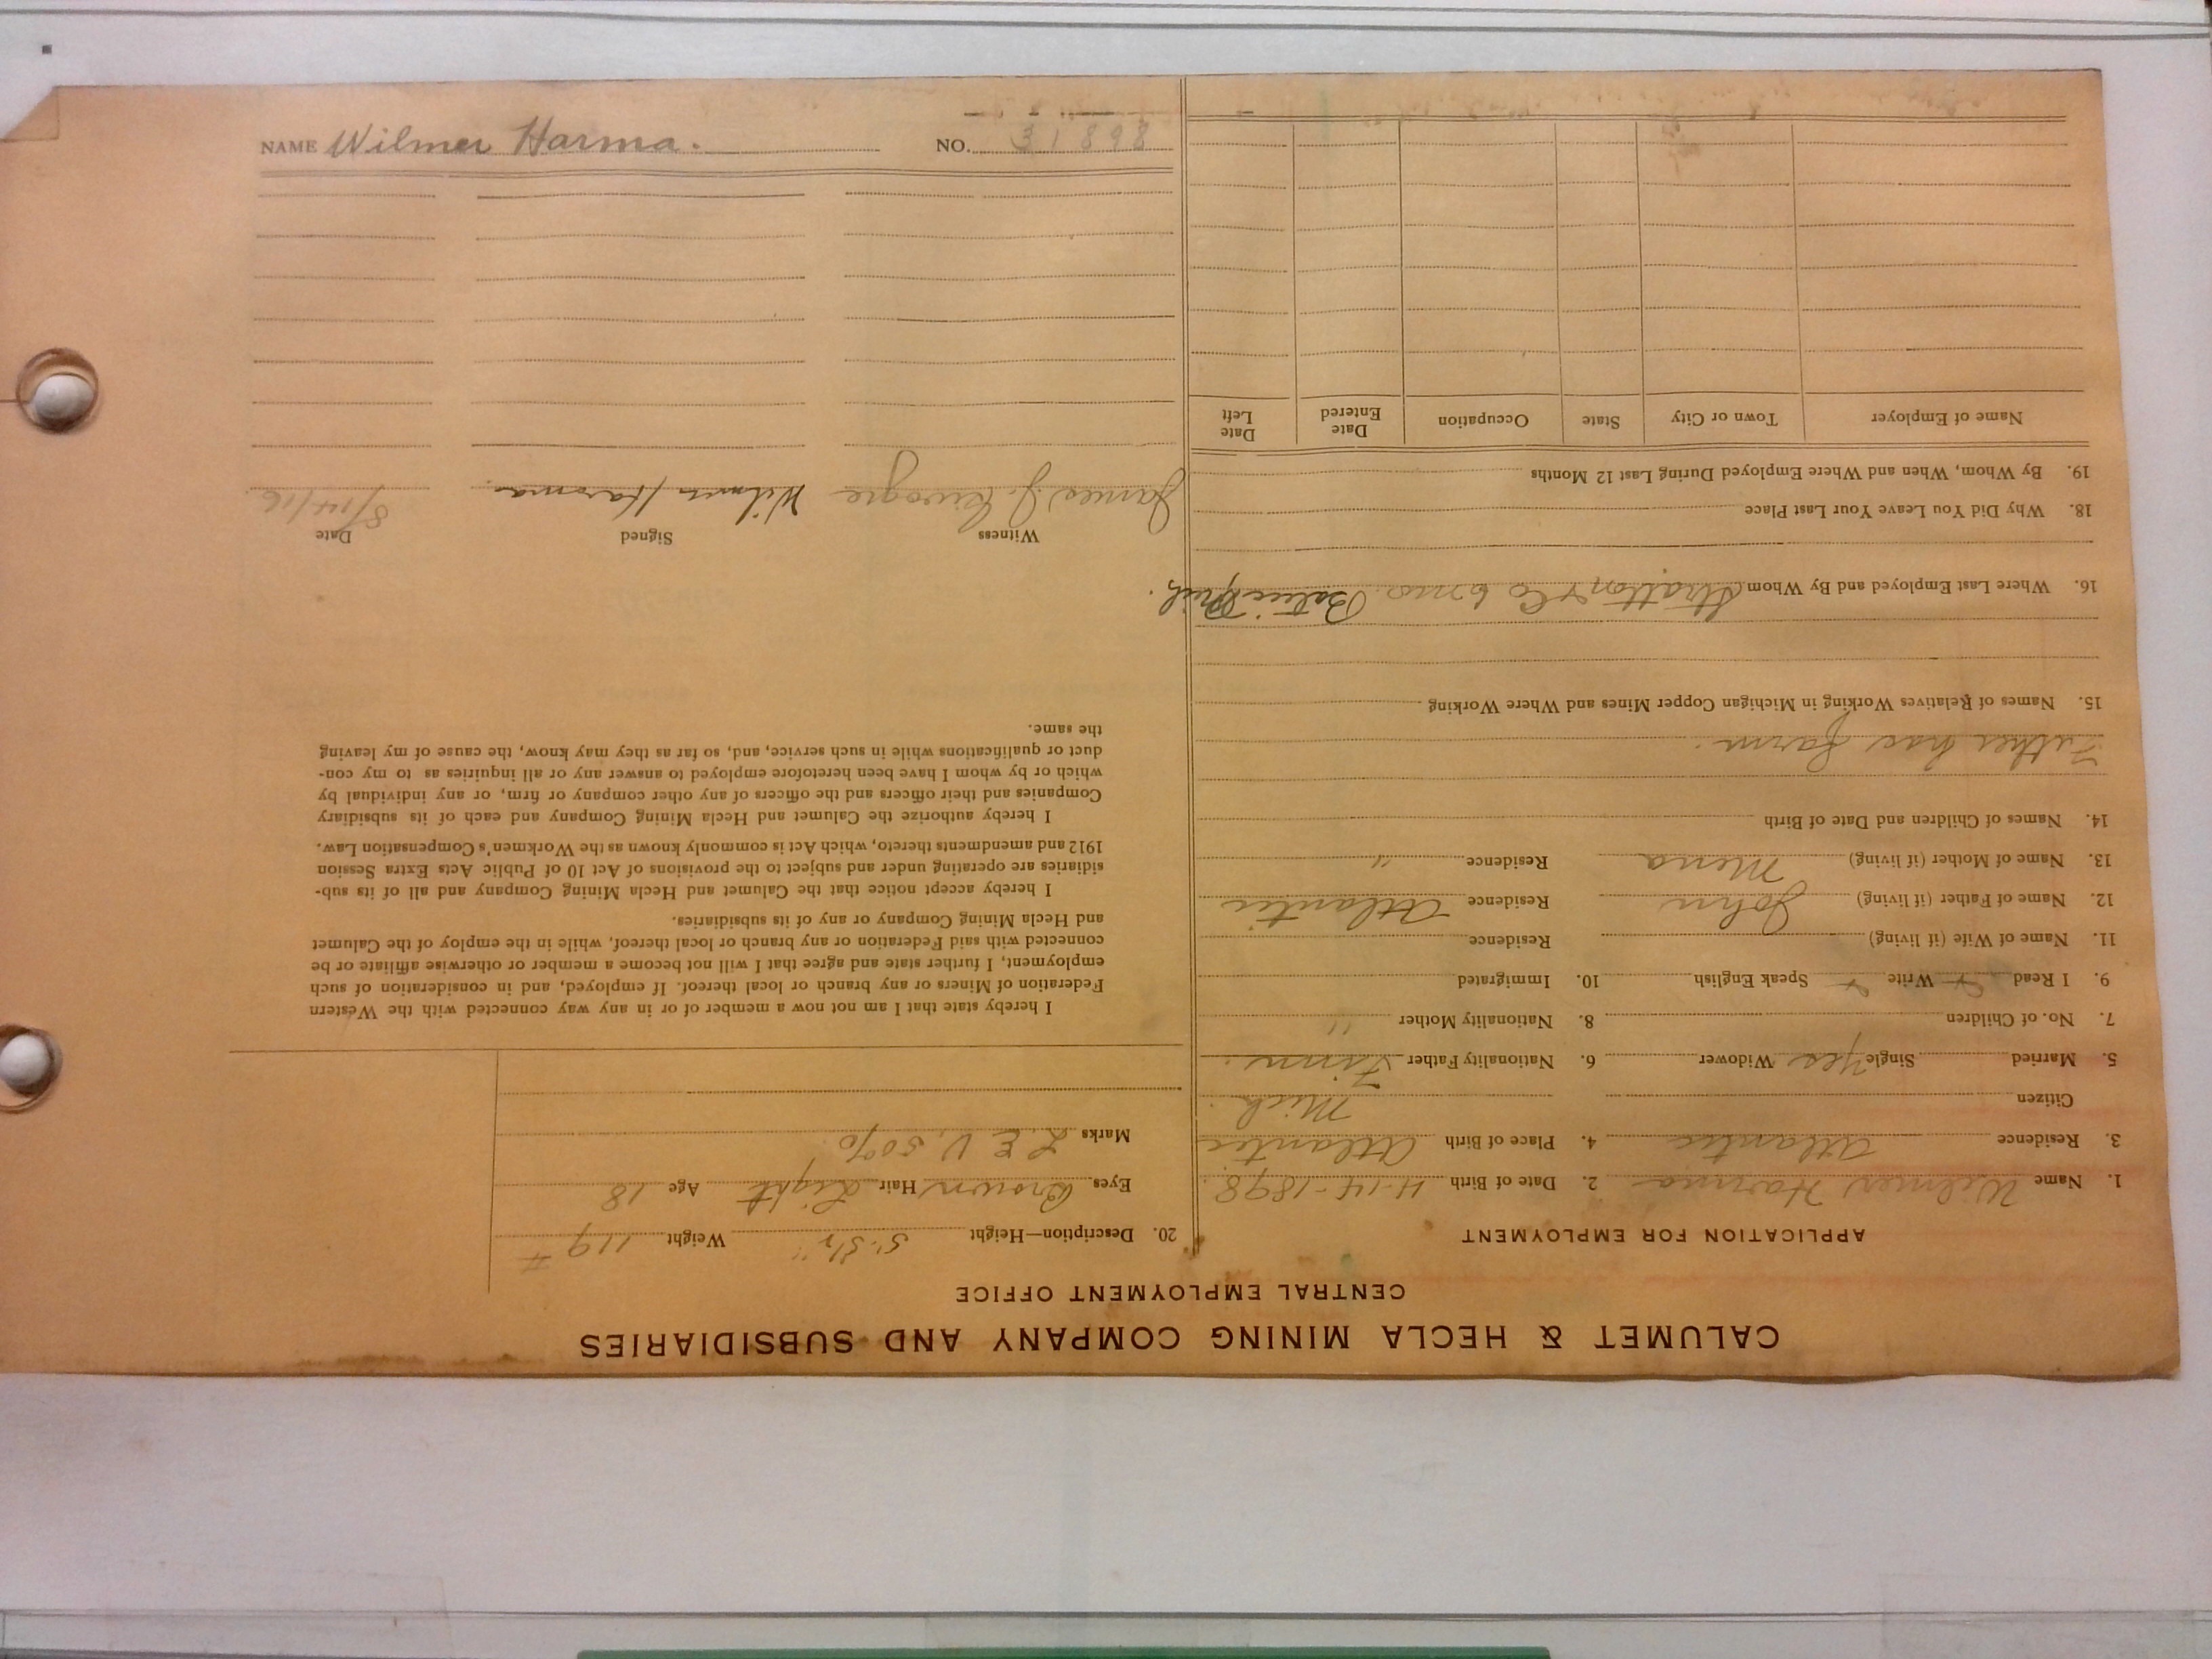 NAME Wilmer Harma. NO. 31898
CALUMET & HECLA MINING COMPANY AND SUBSIDIARIES
CENTRAL EMPLOYMENT OFFICE
APPLICATION FOR EMPLOYMENT
1. Name Wilmer Harma 2. Date of Birth 4-14-1898
3. Residence Atlantic 4. Place of Birth Atlantic
Citizen Mich.
5. Married Single Yes Widower 6. Nationality Father Finn.
7. No. of Children 8. Nationality Mother "
9. I Read Write Speak English 10. Immigrated
11. Name of Wife (if living) Residence
12. Name of Father (if living) John Residence Atlantic
13. Name of Mother (if living) Mena Residence "
14. Names of Children and Date of Birth
Father has farm.
15. Names of Relatives Working in Michigan Copper Mines and Where Working
16. Where Last Employed and By Whom Stratton & Co Mich.
18. Why Did You Leave Your Last Place
19. By Whom, When and Where Employed During Last 12 Months
Name of Employer Town or City State Occupation Date Entered Date Left
20. Description—Height 5'-5½" Weight 119 #
Eyes Brown Hair Light Age 18
Marks L. E. V. 50%
I hereby state that I am not now a member of or in any way connected with the Western
Federation of Miners or any branch or local thereof. If employed, and in consideration of such
employment, I further state and agree that I will not become a member or otherwise affiliate or be
connected with said Federation or any branch or local thereof, while in the employ of the Calumet
and Hecla Mining Company or any of its subsidiaries.
I hereby accept notice that the Calumet and Hecla Mining Company and all of its sub-
sidiaries are operating under and subject to the provisions of Act 10 of Public Acts Extra Session
1912 and amendments thereto, which Act is commonly known as the Workmen's Compensation Law.
I hereby authorize the Calumet and Hecla Mining Company and each of its subsidiary
Companies and their officers and the officers of any other company or firm, or any individual by
which or by whom I have been heretofore employed to answer any or all inquiries as to my con-
duct or qualifications while in such service, and, so far as they may know, the cause of my leaving
the same.
Witness Signed Date
James J. Wilmer Harma. 8/14/16.